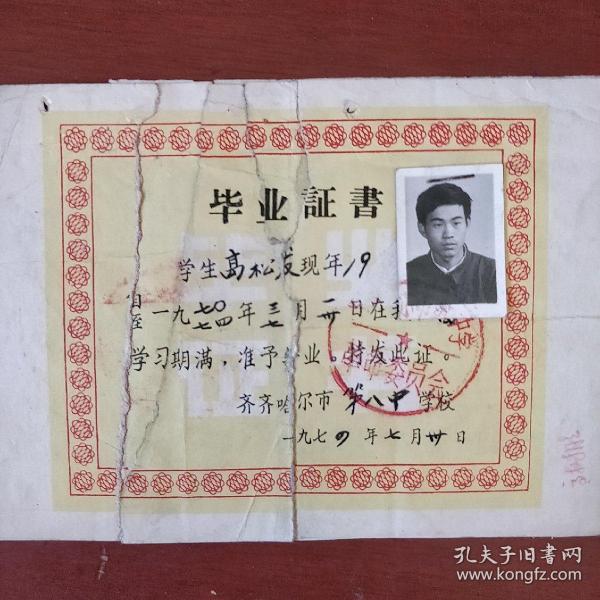 毕业証書
学生高松发现年19
自一九七〇年三月一日在我
至 七四 七 卅
学习期满，准予毕业。特发此证。
齐齐哈尔市第八中学校
一九七四年七月卅日
革命委员会
孔夫子旧書网
www.kongfz.com